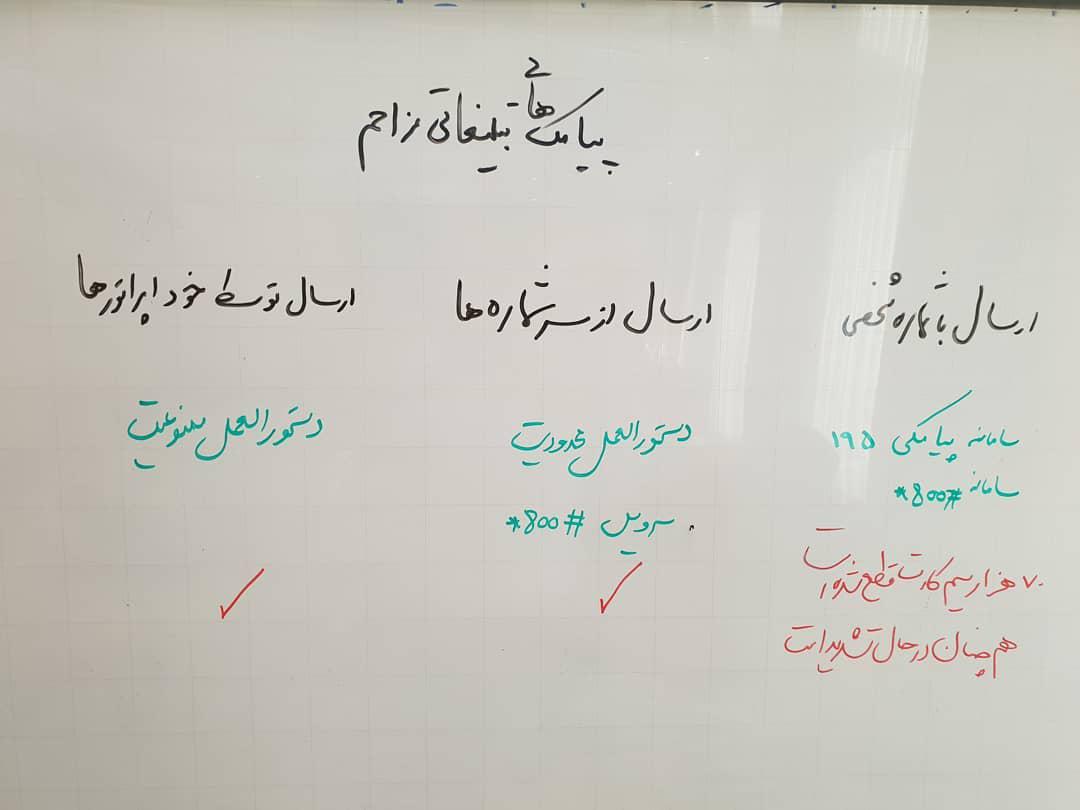 پیامک های تبلیغاتی مزاحم
ارسال با شماره شخصی
سامانه پیامکی ۱۹۵
سامانه *800#
۷۰ هزار سیم کارت قطع شده است
هم چنان در حال تشدید است
ارسال از سرشماره ها
دستورالعمل محدودیت
سرویس *800#
ارسال توسط خود اپراتورها
دستورالعمل ممنوعیت